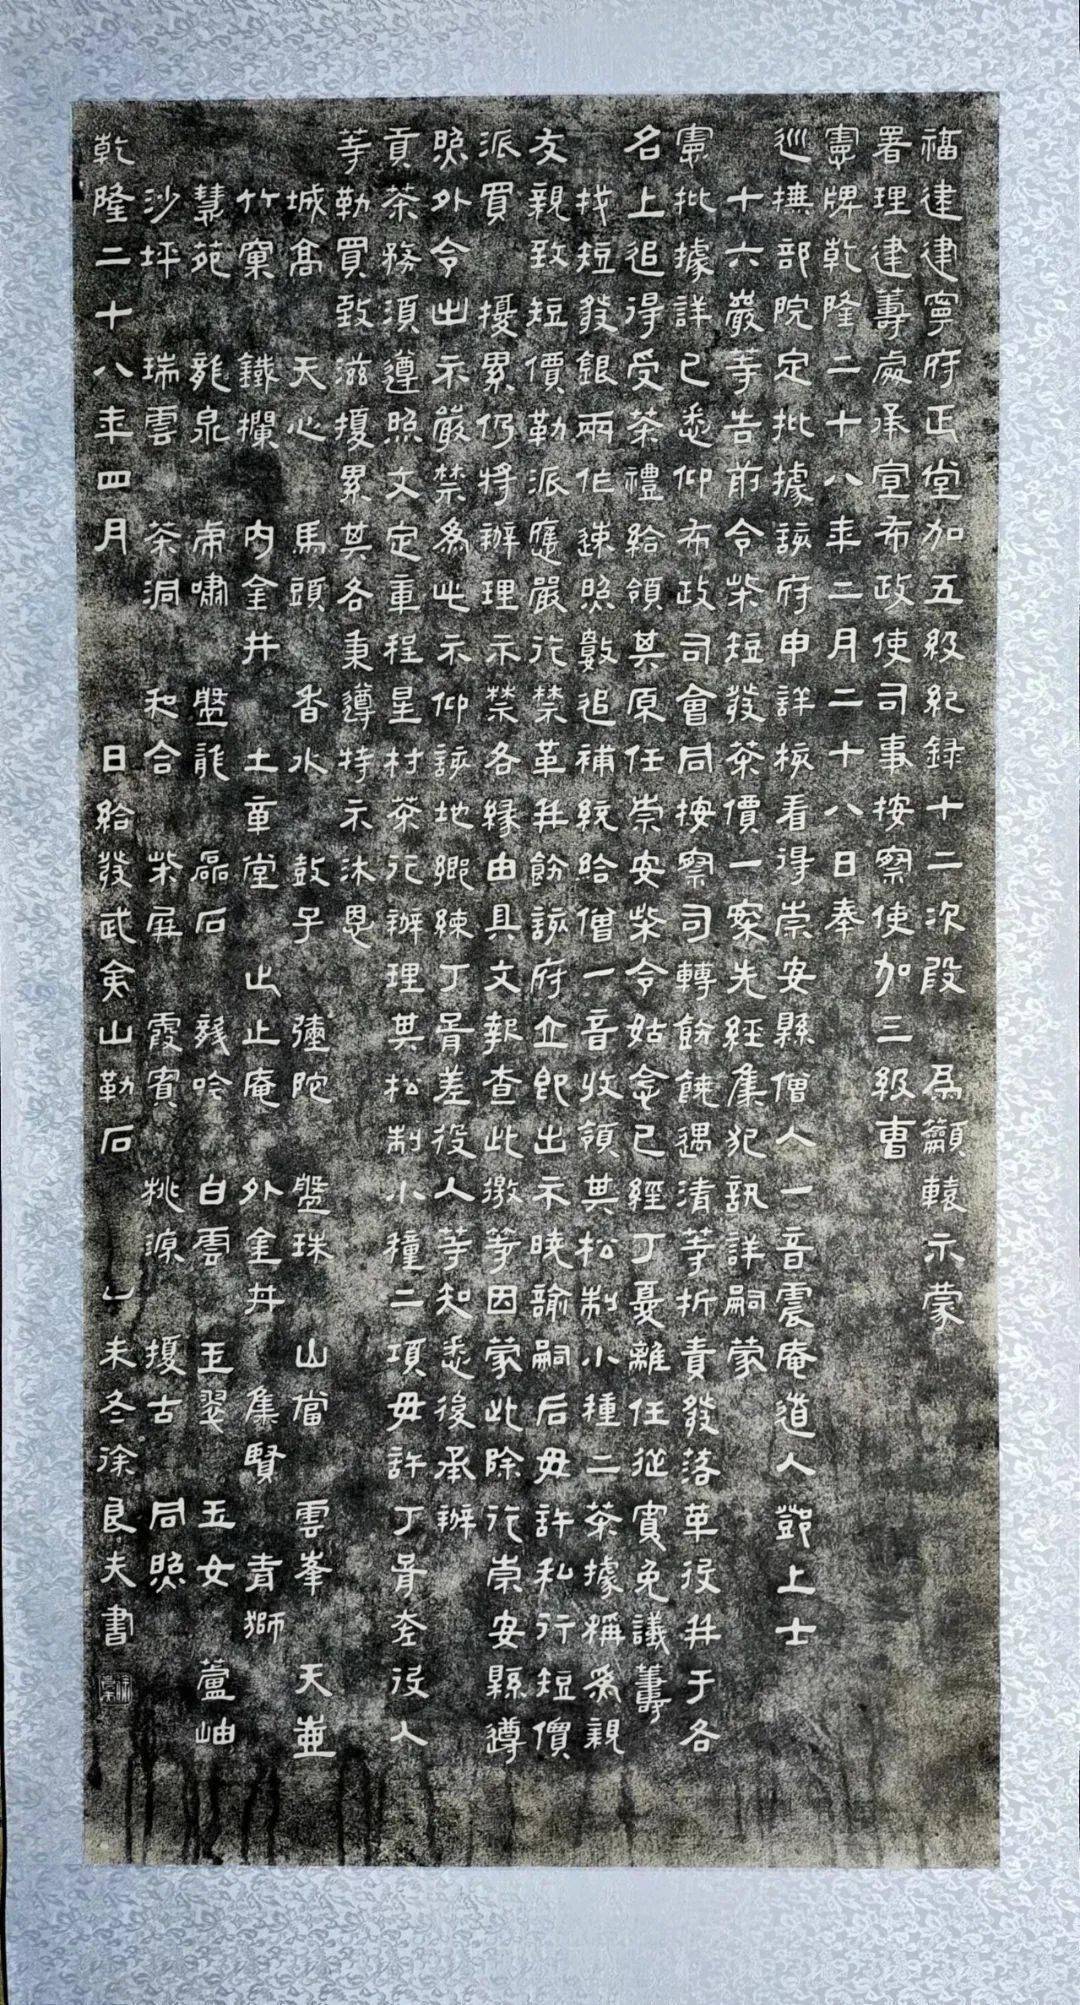 福建建寧府正堂加五級紀録十二次段 爲籲轅示蒙
署理建夀處承宣布政使司事按察使加三級曹
憲牌乾隆二十八年二月二十八日奉
巡撫部院定批據該府申詳核看得崇安縣僧人一音震庵道人鄧上士
十六巖等告前令柴短發茶價一案先經集犯訊詳嗣蒙
憲批據詳已悉仰布政司會同按察司轉飭饒遇清等折責發落革役并于各
名上追得受茶禮給領其原任崇安柴令姑念已經丁憂離任從寬免議夀
找短發銀兩作速照數追補統給僧一音收領其松制小種二茶據稱爲親
友親致短價勒派應嚴行禁革并飭該府立即出示曉諭嗣后毋許私行短價
派買 擾累仍将辦理示禁各縁由具文報查此檄等因蒙此除行崇安縣遵
照外令出示嚴禁爲此示仰該地鄉練丁胥差役人等知悉後承辦
貢茶務須遵照文定章程星村茶行辦理其松制小種二項毋許丁胥差役人
等勒買致滋擾累其各秉遵特示沐恩
城高 天心 馬頭 香水 鼓子 彌陀 盤珠 山當 雲峯 天壺
竹窠 鐵欄 内金井 土章堂 止止庵 外金井 集賢 青獅
慧苑 龍泉 虎嘯 盤龍 磊石 龍吟 白雲 玉翠 玉女 蘆岫
沙坪 瑞雲 茶洞 和合 柴屏 霞賓 桃源 擾古 同照
乾隆二十八年四月 日給發武夷山勒石 乙未冬徐良夫書